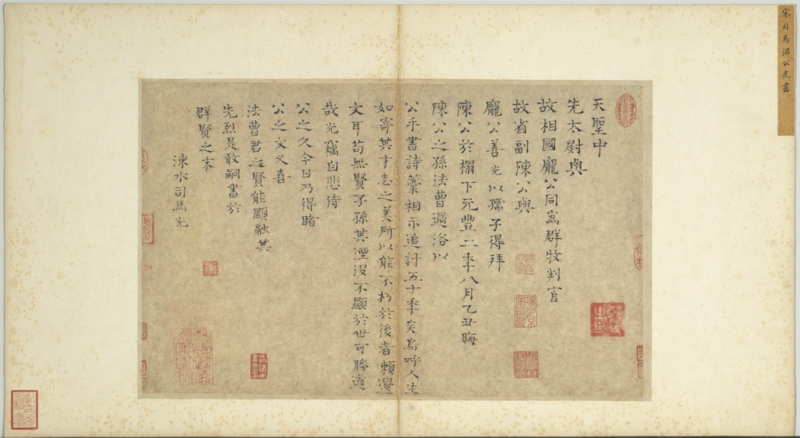 宋司馬溫公光書
天聖中
先太尉與
故相國龐公同為群牧判官
故省副陳公與
龐公善光以孺子得拜
陳公於榻下元豐二季八月乙丑晦
陳公之孫法曹過洛以
公手書詩藁相示追計五十年矣烏呼人生
如寄其才志之美所以能不朽於後者賴遺
文耳苟無賢子孫其湮沒不顯於世可勝道
哉光竊自悲侍
公之久今日乃得睹
公之文又喜
法曹君之賢能顯融其
先烈是敢嗣書於
群賢之末
涑水司馬光